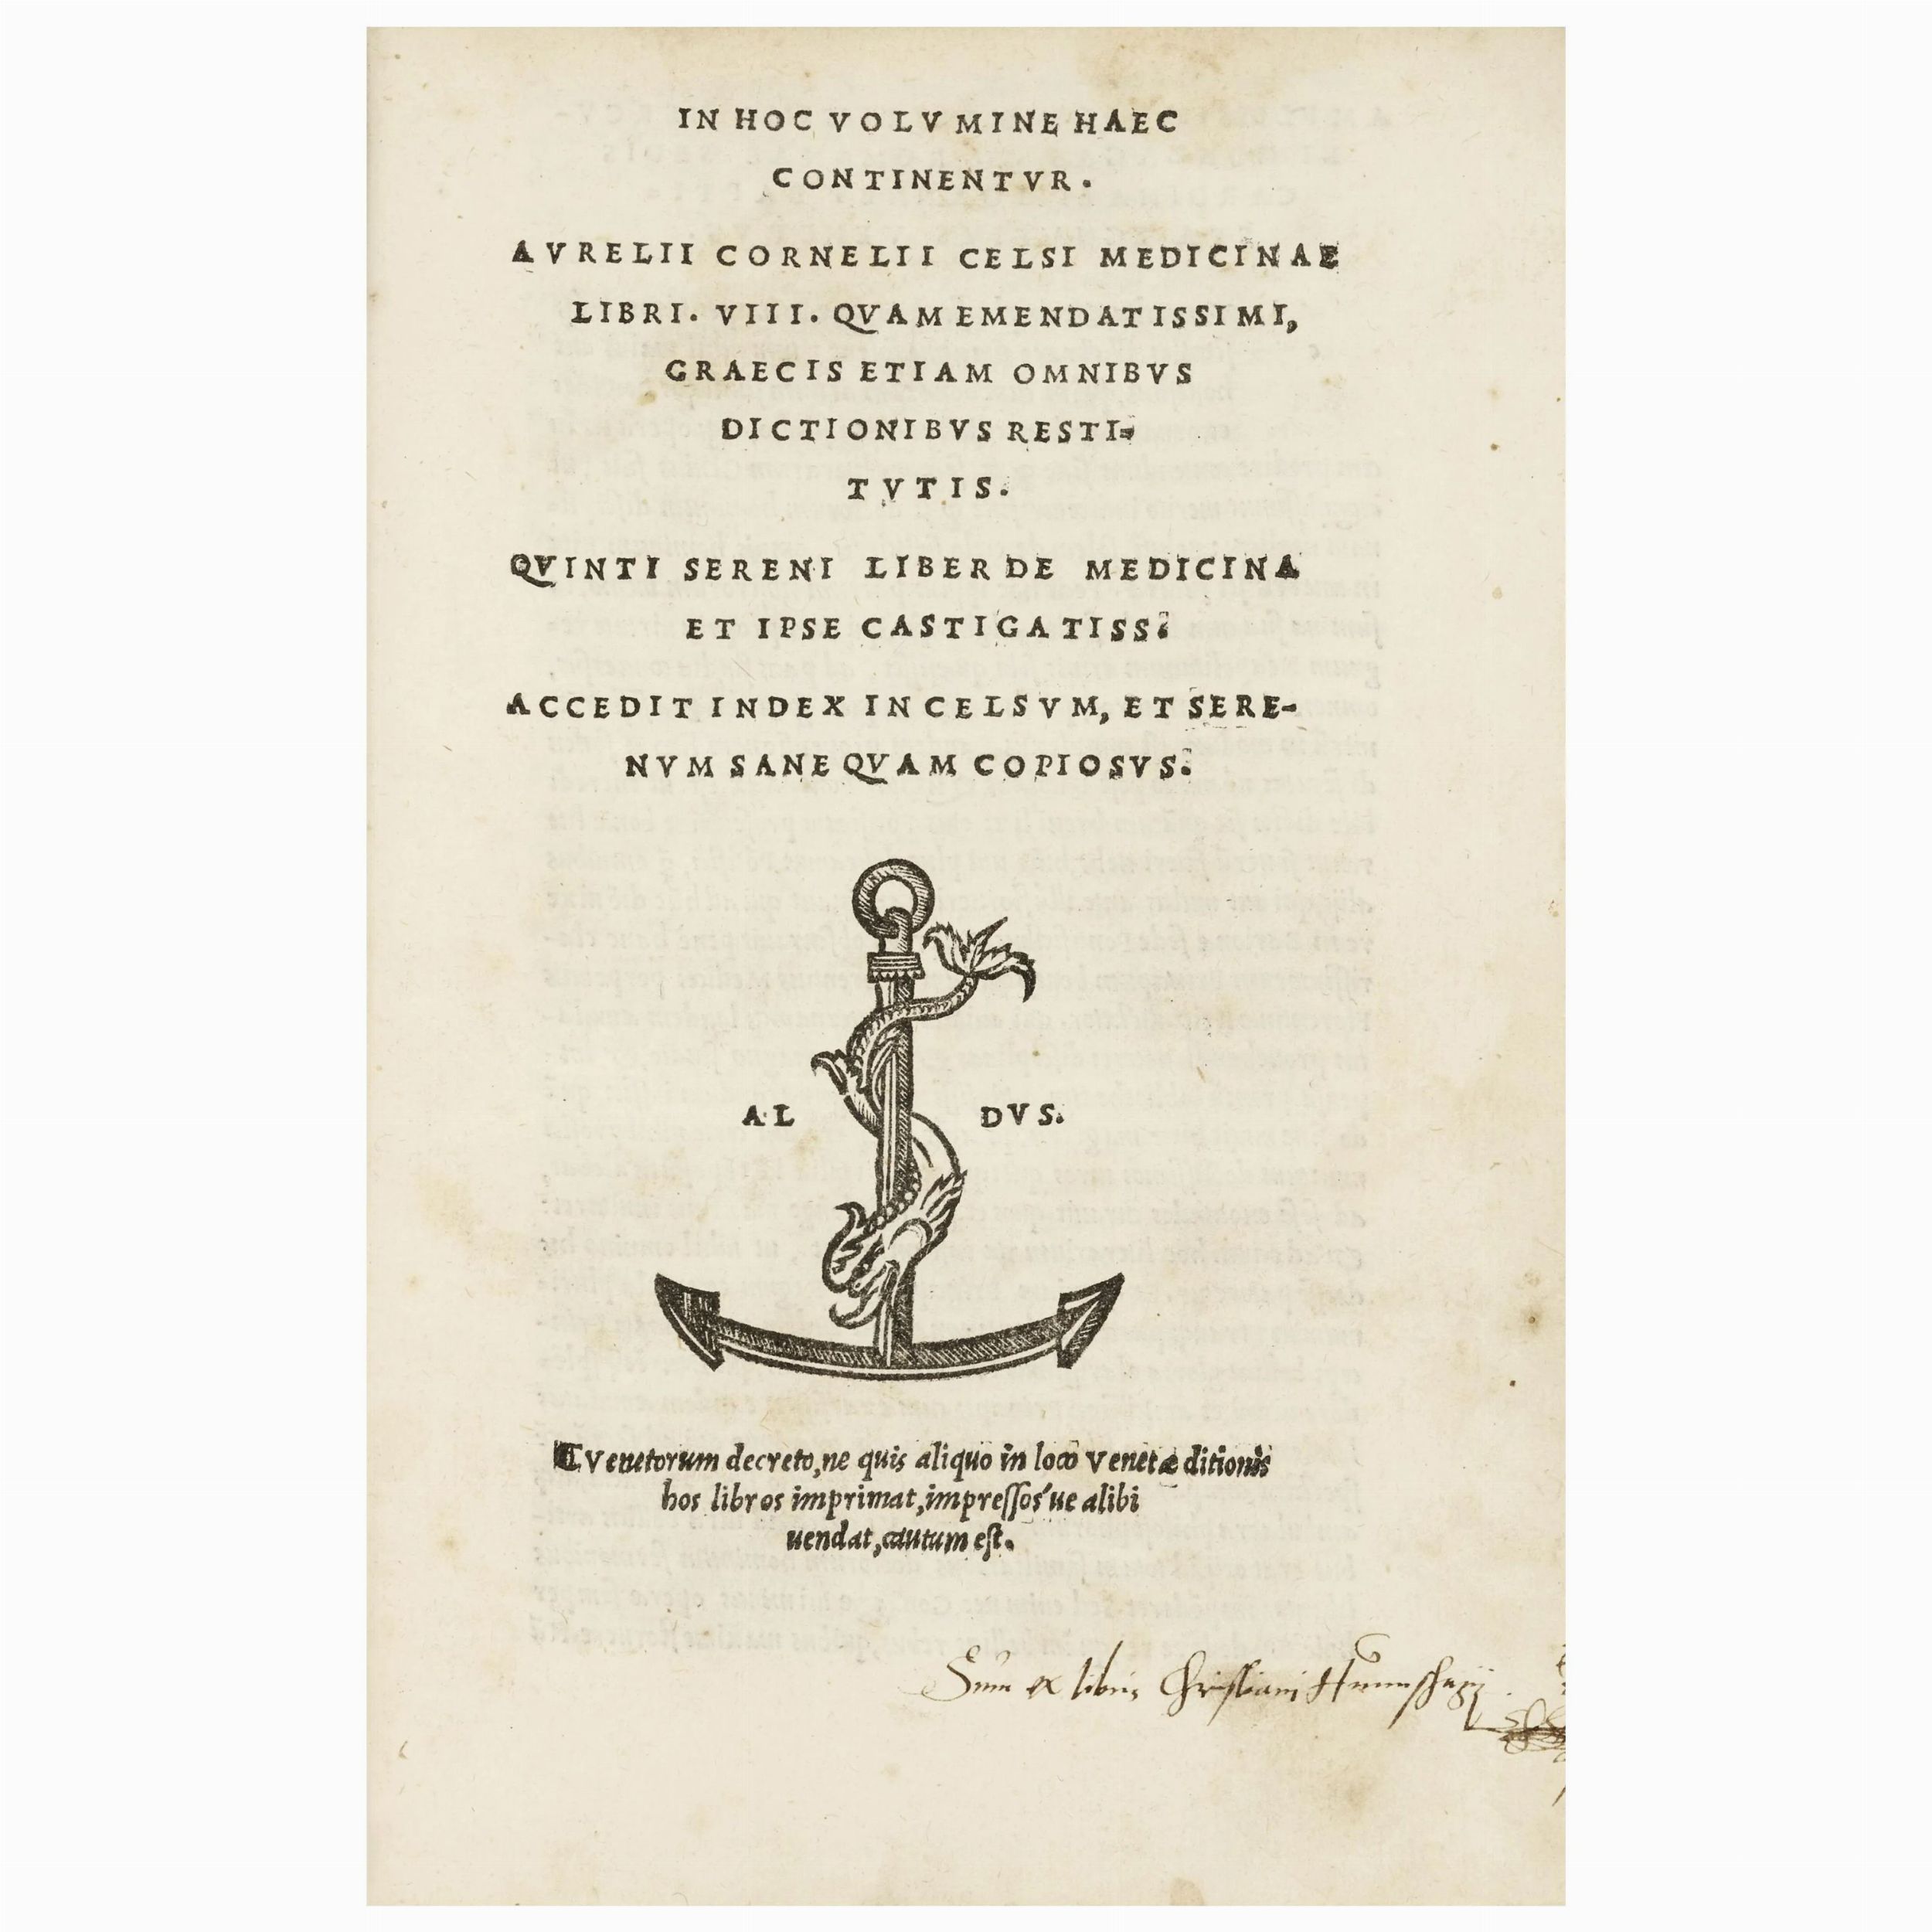 IN HOC VOLVMINE HAEC
CONTINENTVR.
AVRELII CORNELII CELSI MEDICINAE
LIBRI. VIII. QVAM EMENDATISSIMI,
GRAECIS ETIAM OMNIBVS
DICTIONIBVS RESTI-
TVTIS.
QVINTI SERENI LIBER DE MEDICINA
ET IPSE CASTIGATISS.
ACCEDIT INDEX IN CELSVM, ET SERE-
NVM SANE QVAM COPIOSVS.
AL DVS.
Venetorum decreto, ne quis aliquo in loco Venetæ ditionis
hos libros imprimat, impressos'ue alibi
uendat, cautum est.
Sum ex libris Christiani